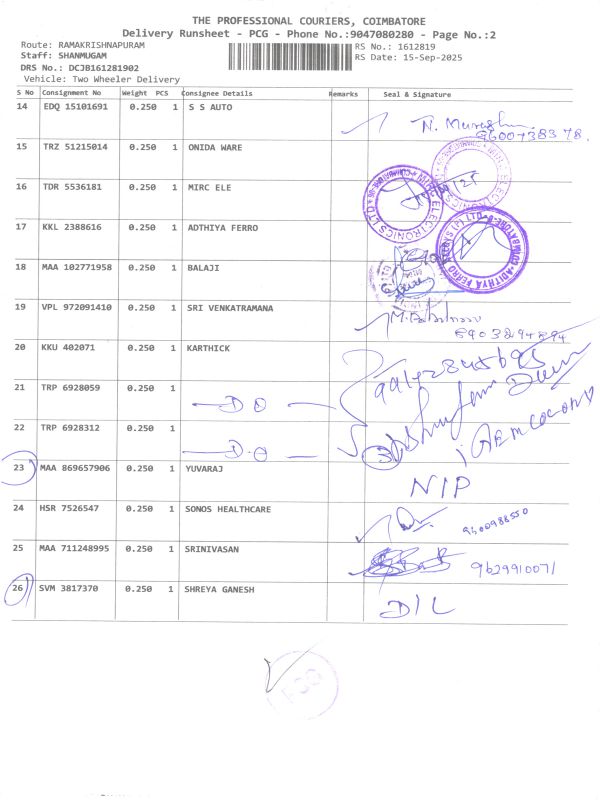 THE PROFESSIONAL COURIERS, COIMBATORE
Delivery Runsheet - PCG - Phone No.:9047080280 - Page No.:2
Route: RAMAKRISHNAPURAM RS No.: 1612819
Staff: SHANMUGAM RS Date: 15-Sep-2025
DRS No.: DCJB161281902
Vehicle: Two Wheeler Delivery
S No Consignment No Weight PCS Consignee Details Remarks Seal & Signature
14 EDQ 15101691 0.250 1 S S AUTO
9600738378.
15 TRZ 51215014 0.250 1 ONIDA WARE
16 TDR 5536181 0.250 1 MIRC ELE
17 KKL 2388616 0.250 1 ADTHIYA FERRO
18 MAA 102771958 0.250 1 BALAJI
19 VPL 972091410 0.250 1 SRI VENKATRAMANA
20 KKU 402071 0.250 1 KARTHICK
21 TRP 6928059 0.250 1
22 TRP 6928312 0.250 1
23 MAA 869657906 0.250 1 YUVARAJ NIP
24 HSR 7526547 0.250 1 SONOS HEALTHCARE 9600988550
25 MAA 711248995 0.250 1 SRINIVASAN 9629910071
26 SVM 3817370 0.250 1 SHREYA GANESH D/L